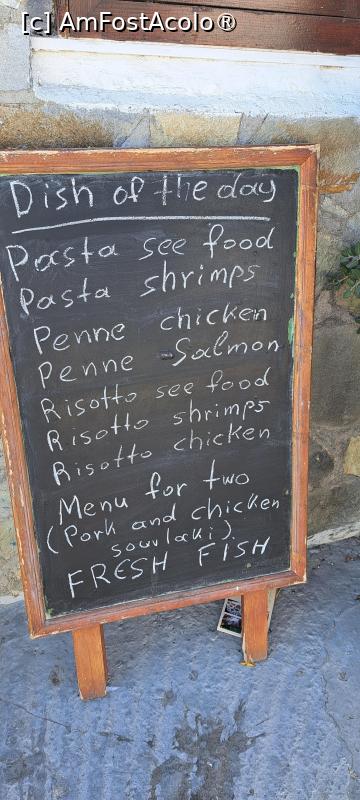 [c] AmFostAcolo®
Dish of the day
Pasta see food
Pasta shrimps
Penne chicken
Penne Salmon
Risotto see food
Risotto shrimps
Risotto chicken
Menu for two
(Pork and chicken
souvlaki)
FRESH FISH